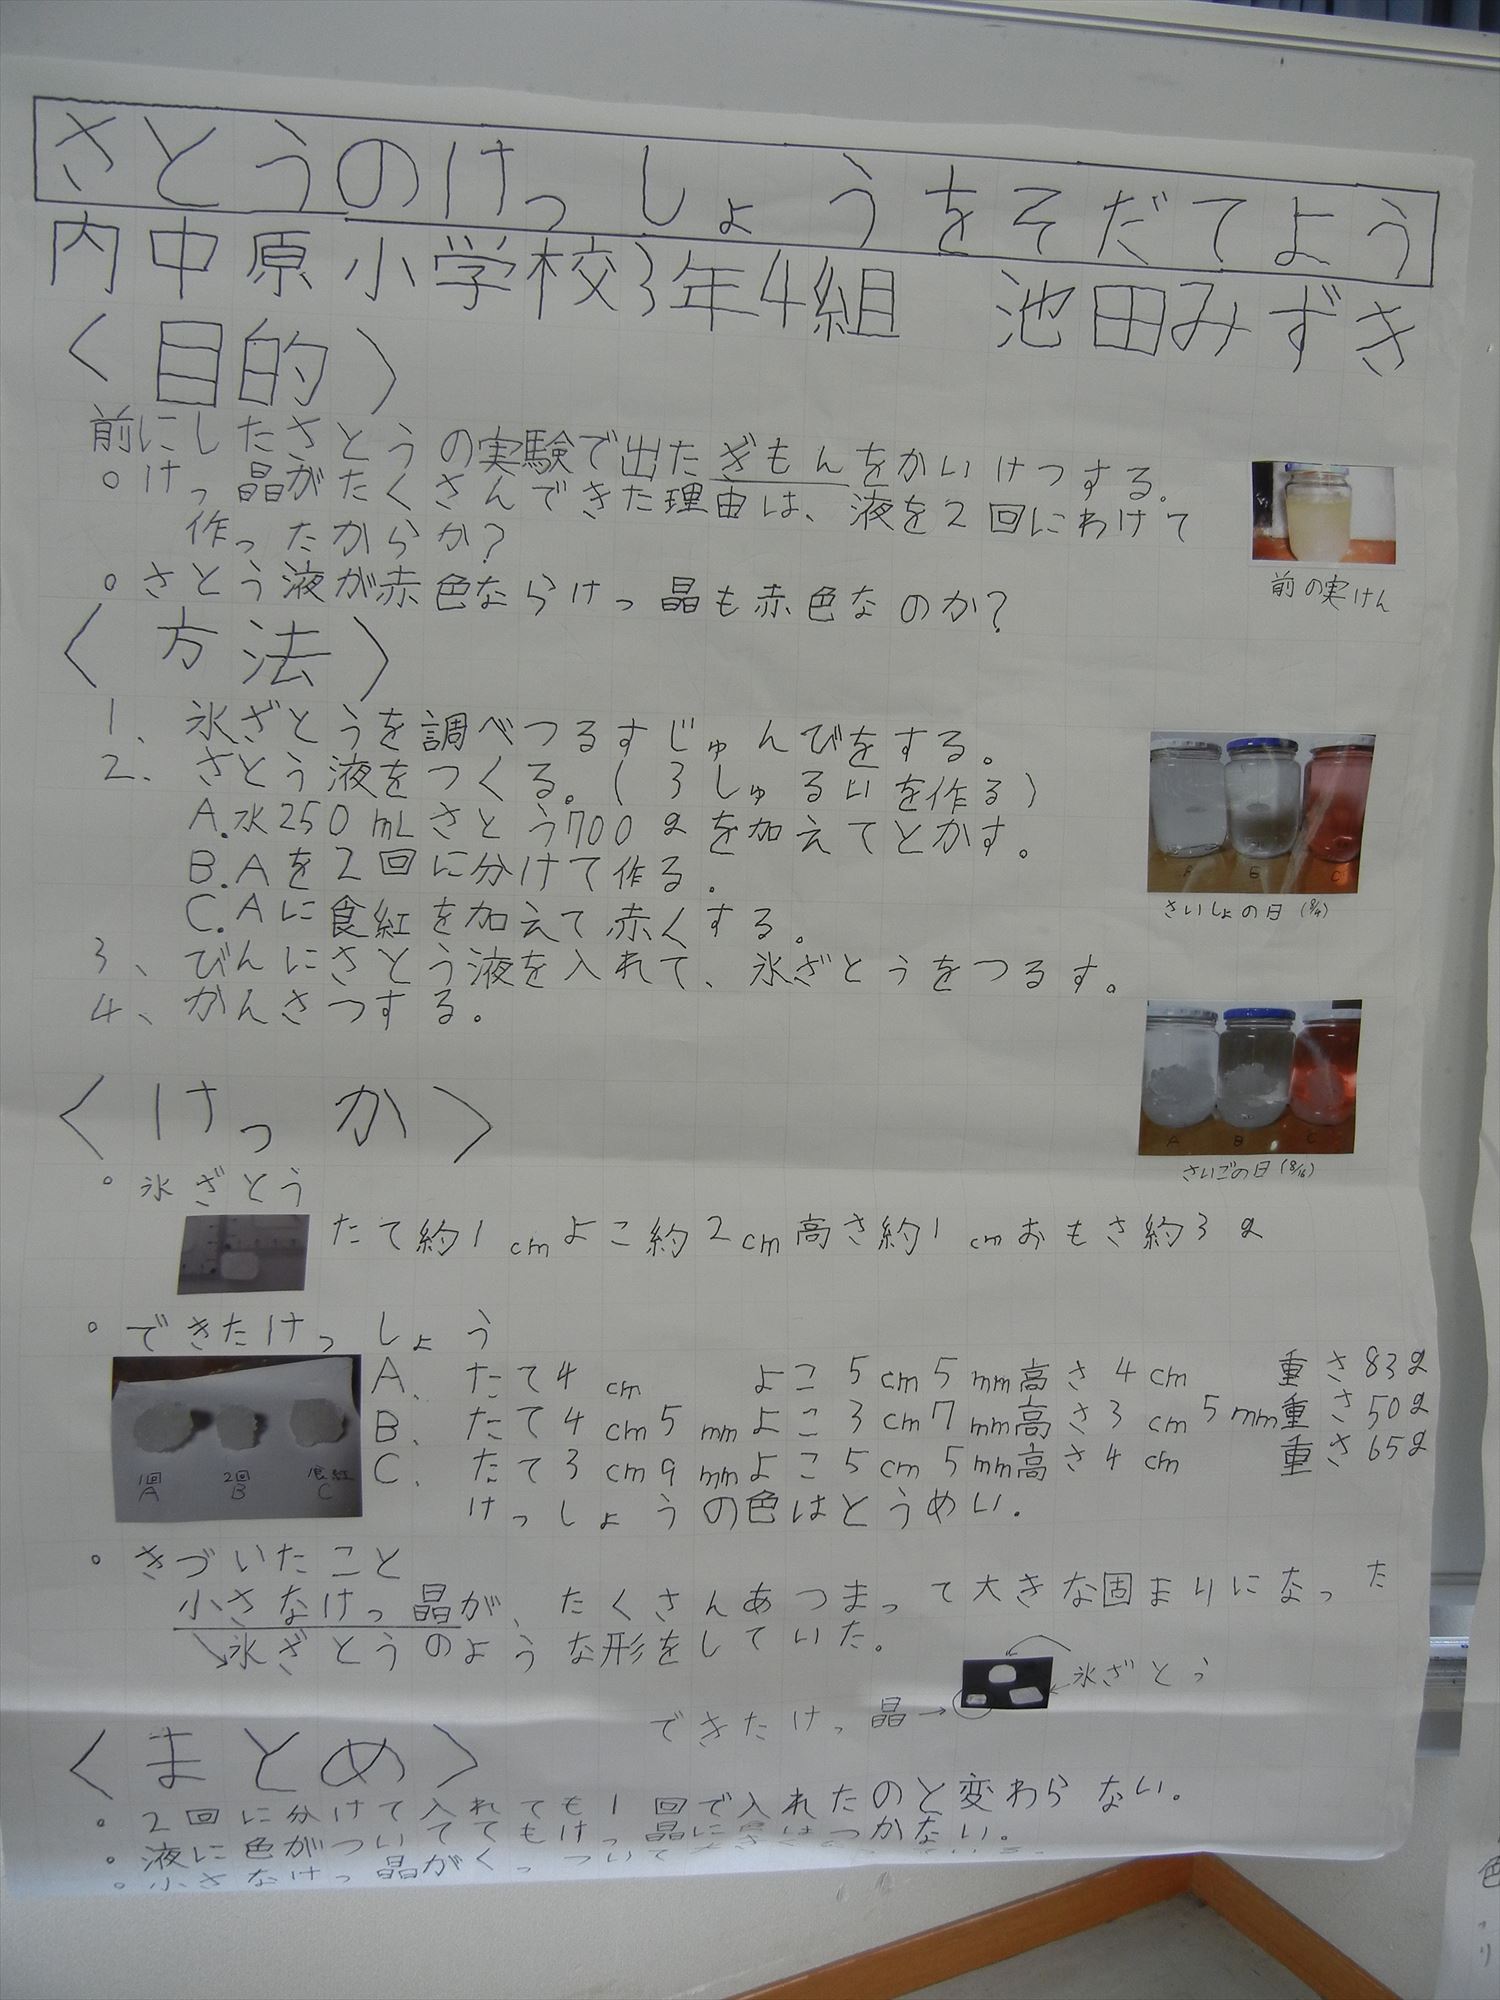 さとうのけっしょうをそだてよう
内中原小学校3年4組 池田みずき
〈目的〉
前にしたさとうの実験で出たぎもんをかいけつする。
○けっ晶がたくさんできた理由は、液を2回にわけて
作ったからか?
○さとう液が赤色ならけっ晶も赤色なのか?
前の実けん
〈方法〉
1、氷ざとうを調べつるすじゅんびをする。
2、さとう液をつくる。(3しゅるいを作る)
A.水250mLさとう700gを加えてとかす。
B.Aを2回に分けて作る.
C.Aに食紅を加えて赤くする。
3、びんにさとう液を入れて、氷ざとうをつるす。
4、かんさつする。
A B C
さいしょの日(8/4)
A B C
さいごの日(8/16)
〈けっか〉
○氷ざとう
たて約1cmよこ約2cm高さ約1cmおもさ約3g
○できたけっしょう
1回 2回 食紅
A B C
A、たて4cm よこ5cm5mm高さ4cm 重さ83g
B、たて4cm5mmよこ3cm7mm高さ3cm5mm重さ50g
C、たて3cm9mmよこ5cm5mm高さ4cm 重さ65g
けっしょうの色はとうめい.
○きづいたこと
小さなけっ晶が、たくさんあつまって大きな固まりになった
↘氷ざとうのような形をしていた。
氷ざとう
できたけっ晶→
〈まとめ〉
○2回に分けて入れても1回で入れたのと変わらない.
○液に色がついててもけっ晶に色はつかない.
○小さなけっ晶がくっついて